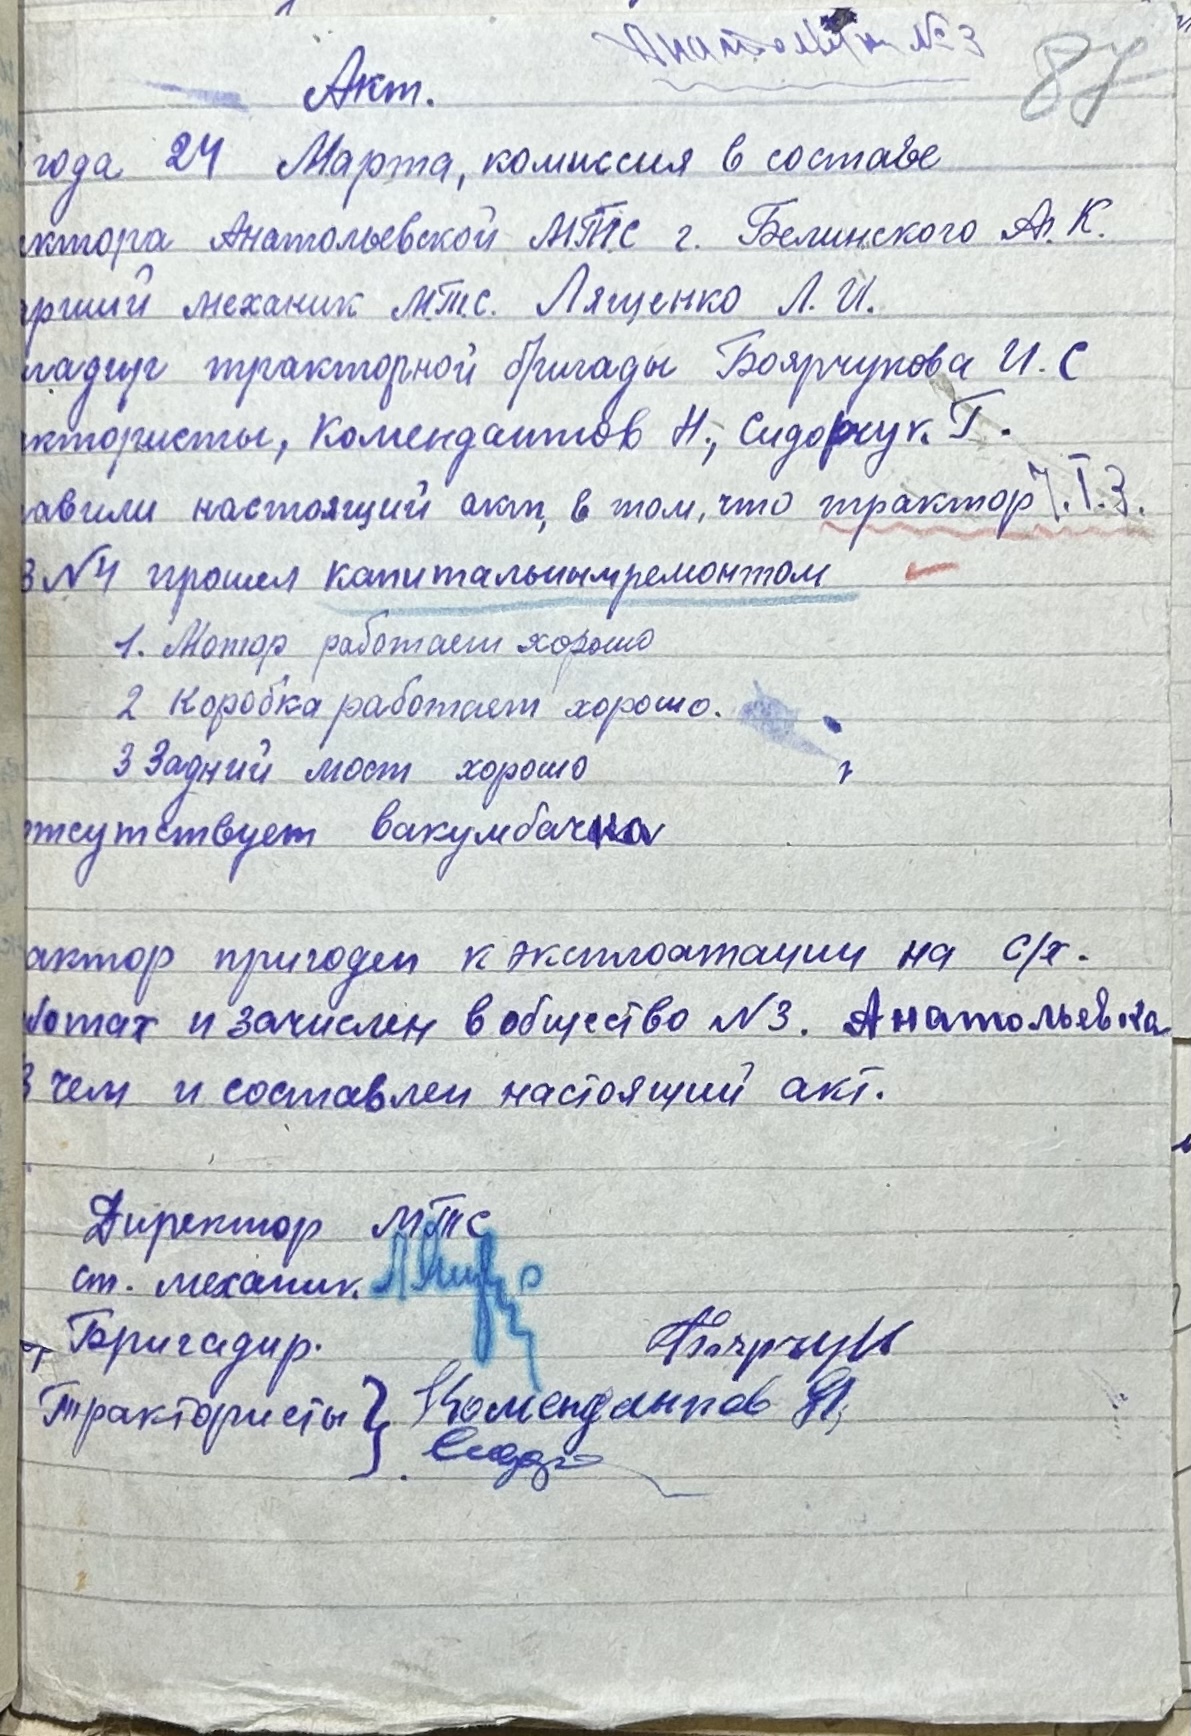 Анатольевка №3
87
Акт.
года 24 Марта, комиссия в составе
ктора Анатольевской МТС г. Белинского А. К.
арший механик М.Т.С. Лященко Л. И.
тракторной бригады Боярчукова И. С
ктористы, Комендантов Н., Сидорчук. Г.
авили настоящий акт, в том, что трактор Ч.Т.З.
З №4 прошел капитальнымремонтом
1. Мотор работает хорошо
2 Коробка работает хорошо.
3 Задний мост хорошо
отсутствует вакумбачка
актор пригоден к эксплоатации на с/х.
ботах и зачислен в общество №3. Анатольевка
В чем и составлен настоящий акт.
Директор МТС
ст. механик.
Бригадир. Боярчук
Трактористы } Комендантов Н,